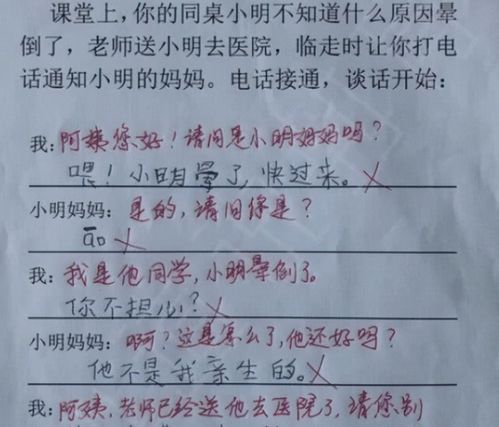 课堂上，你的同桌小明不知道什么原因晕
倒了，老师送小明去医院，临走时让你打电
话通知小明的妈妈。电话接通，谈话开始：
我：阿姨您好！请问是小明妈妈吗？
喂！小明晕了，快过来。
小明妈妈：是的，请问你是？
哦
我：我是他同学，小明晕倒了。
你不担心？
小明妈妈：啊？这是怎么了，他还好吗？
他不是我亲生的。
我：阿姨，老师已经送他去医院了，请您别